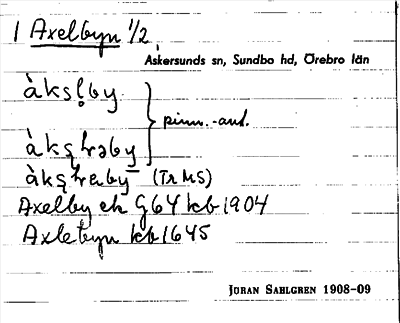 1 Axelbyn 1/2
Askersunds sn, Sundbo hd, Örebro län
àksl̥by
pinn.-aud.
àksl̥rəby
àksl̥raby (Tr MS)
Axelby ek G64 kb 1904
Axlebyn kb 1645
JÖRAN SAHLGREN 1908-09